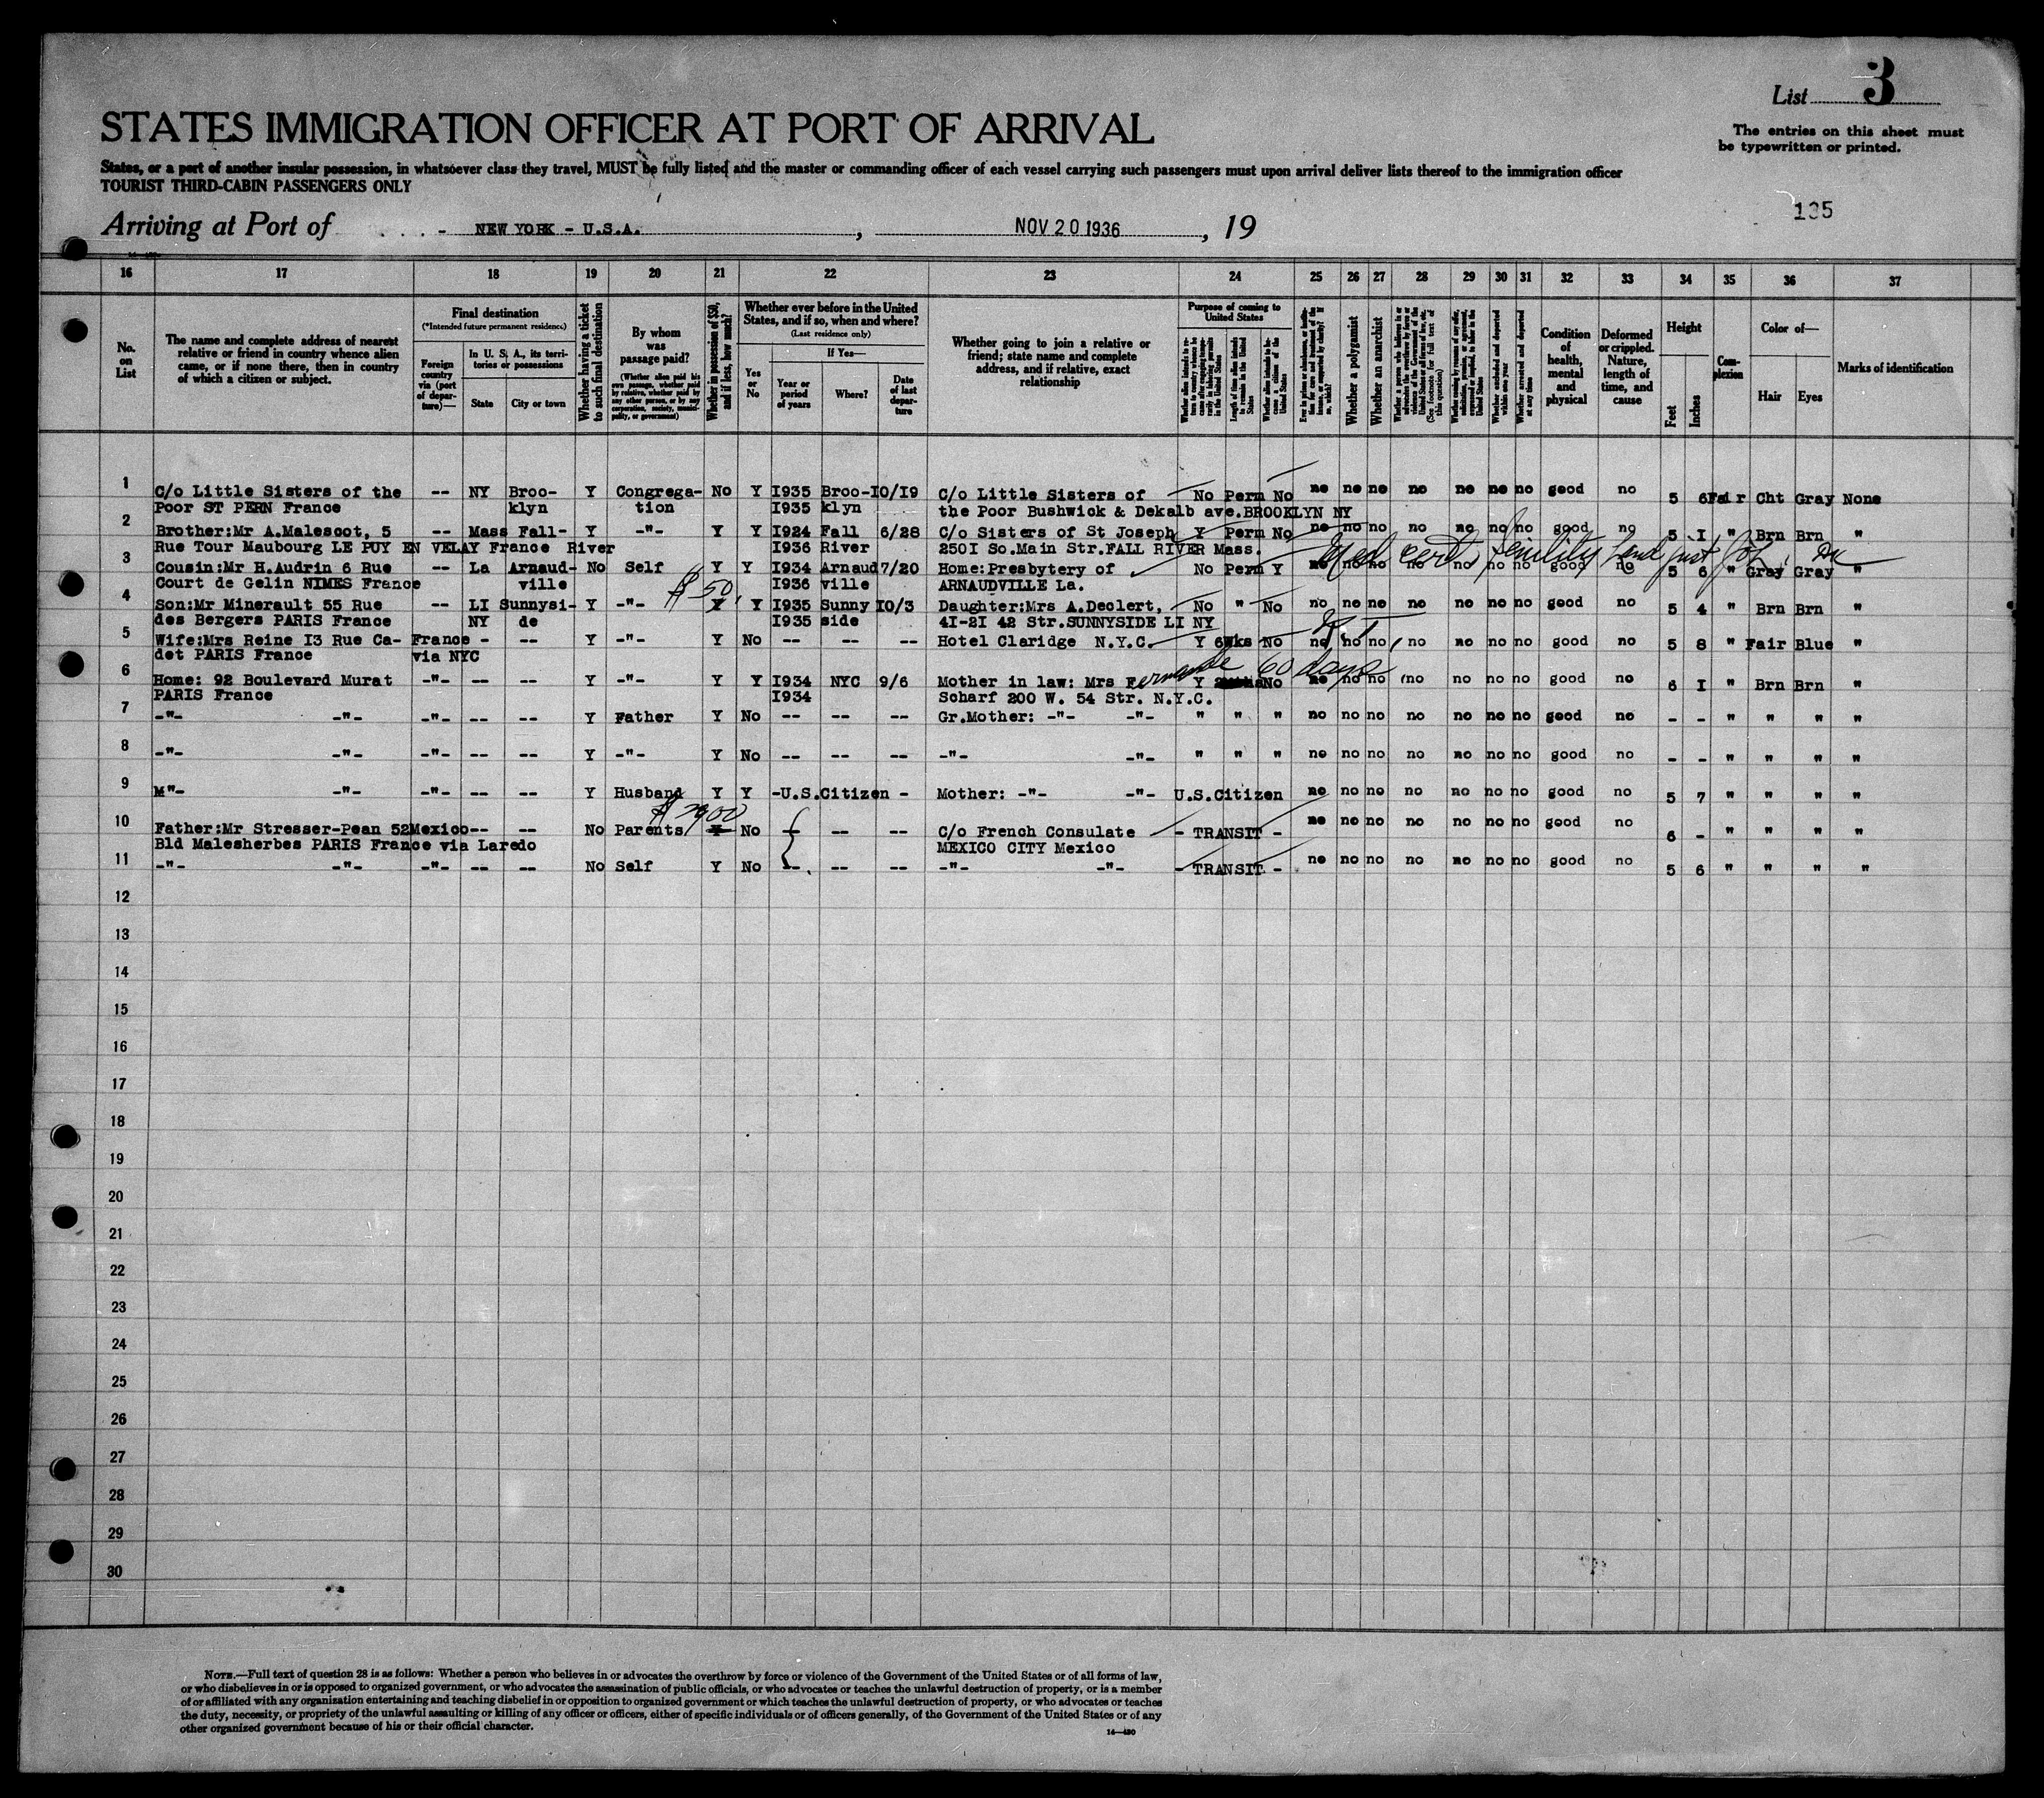 List 3
STATES IMMIGRATION OFFICER AT PORT OF ARRIVAL
The entries on this sheet must
be typewritten or printed.
States, or a part of another insular possession, in whatsoever class they travel, MUST be fully listed and the master or commanding officer of each vessel carrying such passengers must upon arrival deliver lists thereof to the immigration officer
TOURIST THIRD-CABIN PASSENGERS ONLY
135
Arriving at Port of - NEW YORK - U.S.A. , NOV 20 1936 , 19
16 17 18 19 20 21 22 23 24 25 26 27 28 29 30 31 32 33 34 35 36 37
No. on List
The name and complete address of nearest relative or friend in country whence alien came, or if none there, then in country of which a citizen or subject.
Final destination
(*Intended future permanent residence)
Foreign country via (port of departure)—
In U. S. A., its territories or possessions
State City or town
Whether having a ticket to such final destination
By whom was passage paid?
(Whether alien paid his own passage, whether paid by relative, whether paid by any other person, or by any corporation, society, municipality, or government)
Whether in possession of $50, and if less, how much?
Whether ever before in the United States, and if so, when and where?
(Last residence only)
Yes or No
If Yes—
Year or period of years
Where?
Date of last departure
Whether going to join a relative or friend; state name and complete address, and if relative, exact relationship
Purpose of coming to United States
Whether a polygamist
Whether an anarchist
Whether excluded and deported within one year
Whether arrested and deported at any time
Condition of health, mental and physical
Deformed or crippled. Nature, length of time, and cause
Height
Feet Inches
Complexion
Color of—
Hair Eyes
Marks of identification
1 C/o Little Sisters of the -- NY Broo- Y Congrega- No Y I935 Broo- I0/I9 C/o Little Sisters of No Perm No no no no no no no no good no 5 6 Fair Cht Gray None
Poor ST PERN France klyn tion I935 klyn the Poor Bushwick & Dekalb ave.BROOKLYN NY
2 Brother:Mr A.Malescot, 5 -- Mass Fall- Y -"- Y Y I924 Fall 6/28 C/o Sisters of St Joseph Y Perm No no no no no no no no good no 5 I " Brn Brn "
Rue Tour Maubourg LE PUY EN VELAY France River I936 River 250I So.Main Str.FALL RIVER Mass.
Med cert senility
3 Cousin:Mr H.Audrin 6 Rue -- La Arnaud- No Self Y Y I934 Arnaud 7/20 Home:Presbytery of No Perm Y no no no no no no no good no 5 6 " Gray Gray "
Court de Gelin NIMES France ville $50. I936 ville ARNAUDVILLE La.
4 Son:Mr Minerault 55 Rue -- LI Sunnysi- Y -"- Y Y I935 Sunny I0/3 Daughter:Mrs A.Deolert, No " No no no no no no no no good no 5 4 " Brn Brn "
des Bergers PARIS France NY de I935 side 4I-2I 42 Str.SUNNYSIDE LI NY
5 Wife:Mrs Reine I3 Rue Ca- France - -- Y -"- Y No -- -- -- Hotel Claridge N.Y.C. Y 6wks No no no no no no no no good no 5 8 " Fair Blue "
det PARIS France via NYC
60 days
6 Home: 92 Boulevard Murat -"- -- -- Y -"- Y Y I934 NYC 9/6 Mother in law: Mrs Fernande Y No no no no no no no no good no 6 I " Brn Brn "
PARIS France I934 Scharf 200 W. 54 Str. N.Y.C.
7 -"- -"- -"- -- -- Y Father Y No -- -- -- Gr.Mother: -"- -"- " " " no no no no no no no good no - - " " " "
8 -"- -"- -"- -- -- Y -"- Y No -- -- -- -"- -"- " " " no no no no no no no good no - - " " " "
9 M"- -"- -"- -- -- Y Husband Y Y -U.S.Citizen - Mother: -"- -"- U.S.Citizen no no no no no no no good no 5 7 " " " "
10 Father:Mr Stresser-Pean 52 Mexico-- -- No Parents Y No -- -- -- C/o French Consulate - TRANSIT - no no no no no no no good no 6 - " " " "
Bld Malesherbes PARIS France via Laredo MEXICO CITY Mexico
11 -"- -"- -"- -- -- No Self Y No -- -- -- -"- -"- - TRANSIT - no no no no no no no good no 5 6 " " " "
12
13
14
15
16
17
18
19
20
21
22
23
24
25
26
27
28
29
30
NOTE.—Full text of question 28 is as follows: Whether a person who believes in or advocates the overthrow by force or violence of the Government of the United States or of all forms of law,
or who disbelieves in or is opposed to organized government, or who advocates the assassination of public officials, or who advocates or teaches the unlawful destruction of property, or is a member
of or affiliated with any organization entertaining and teaching disbelief in or opposition to organized government or which teaches the unlawful destruction of property, or who advocates or teaches
the duty, necessity, or propriety of the unlawful assaulting or killing of any officer or officers, either of specific individuals or of officers generally, of the Government of the United States or of any
other organized government because of his or their official character.
14—430